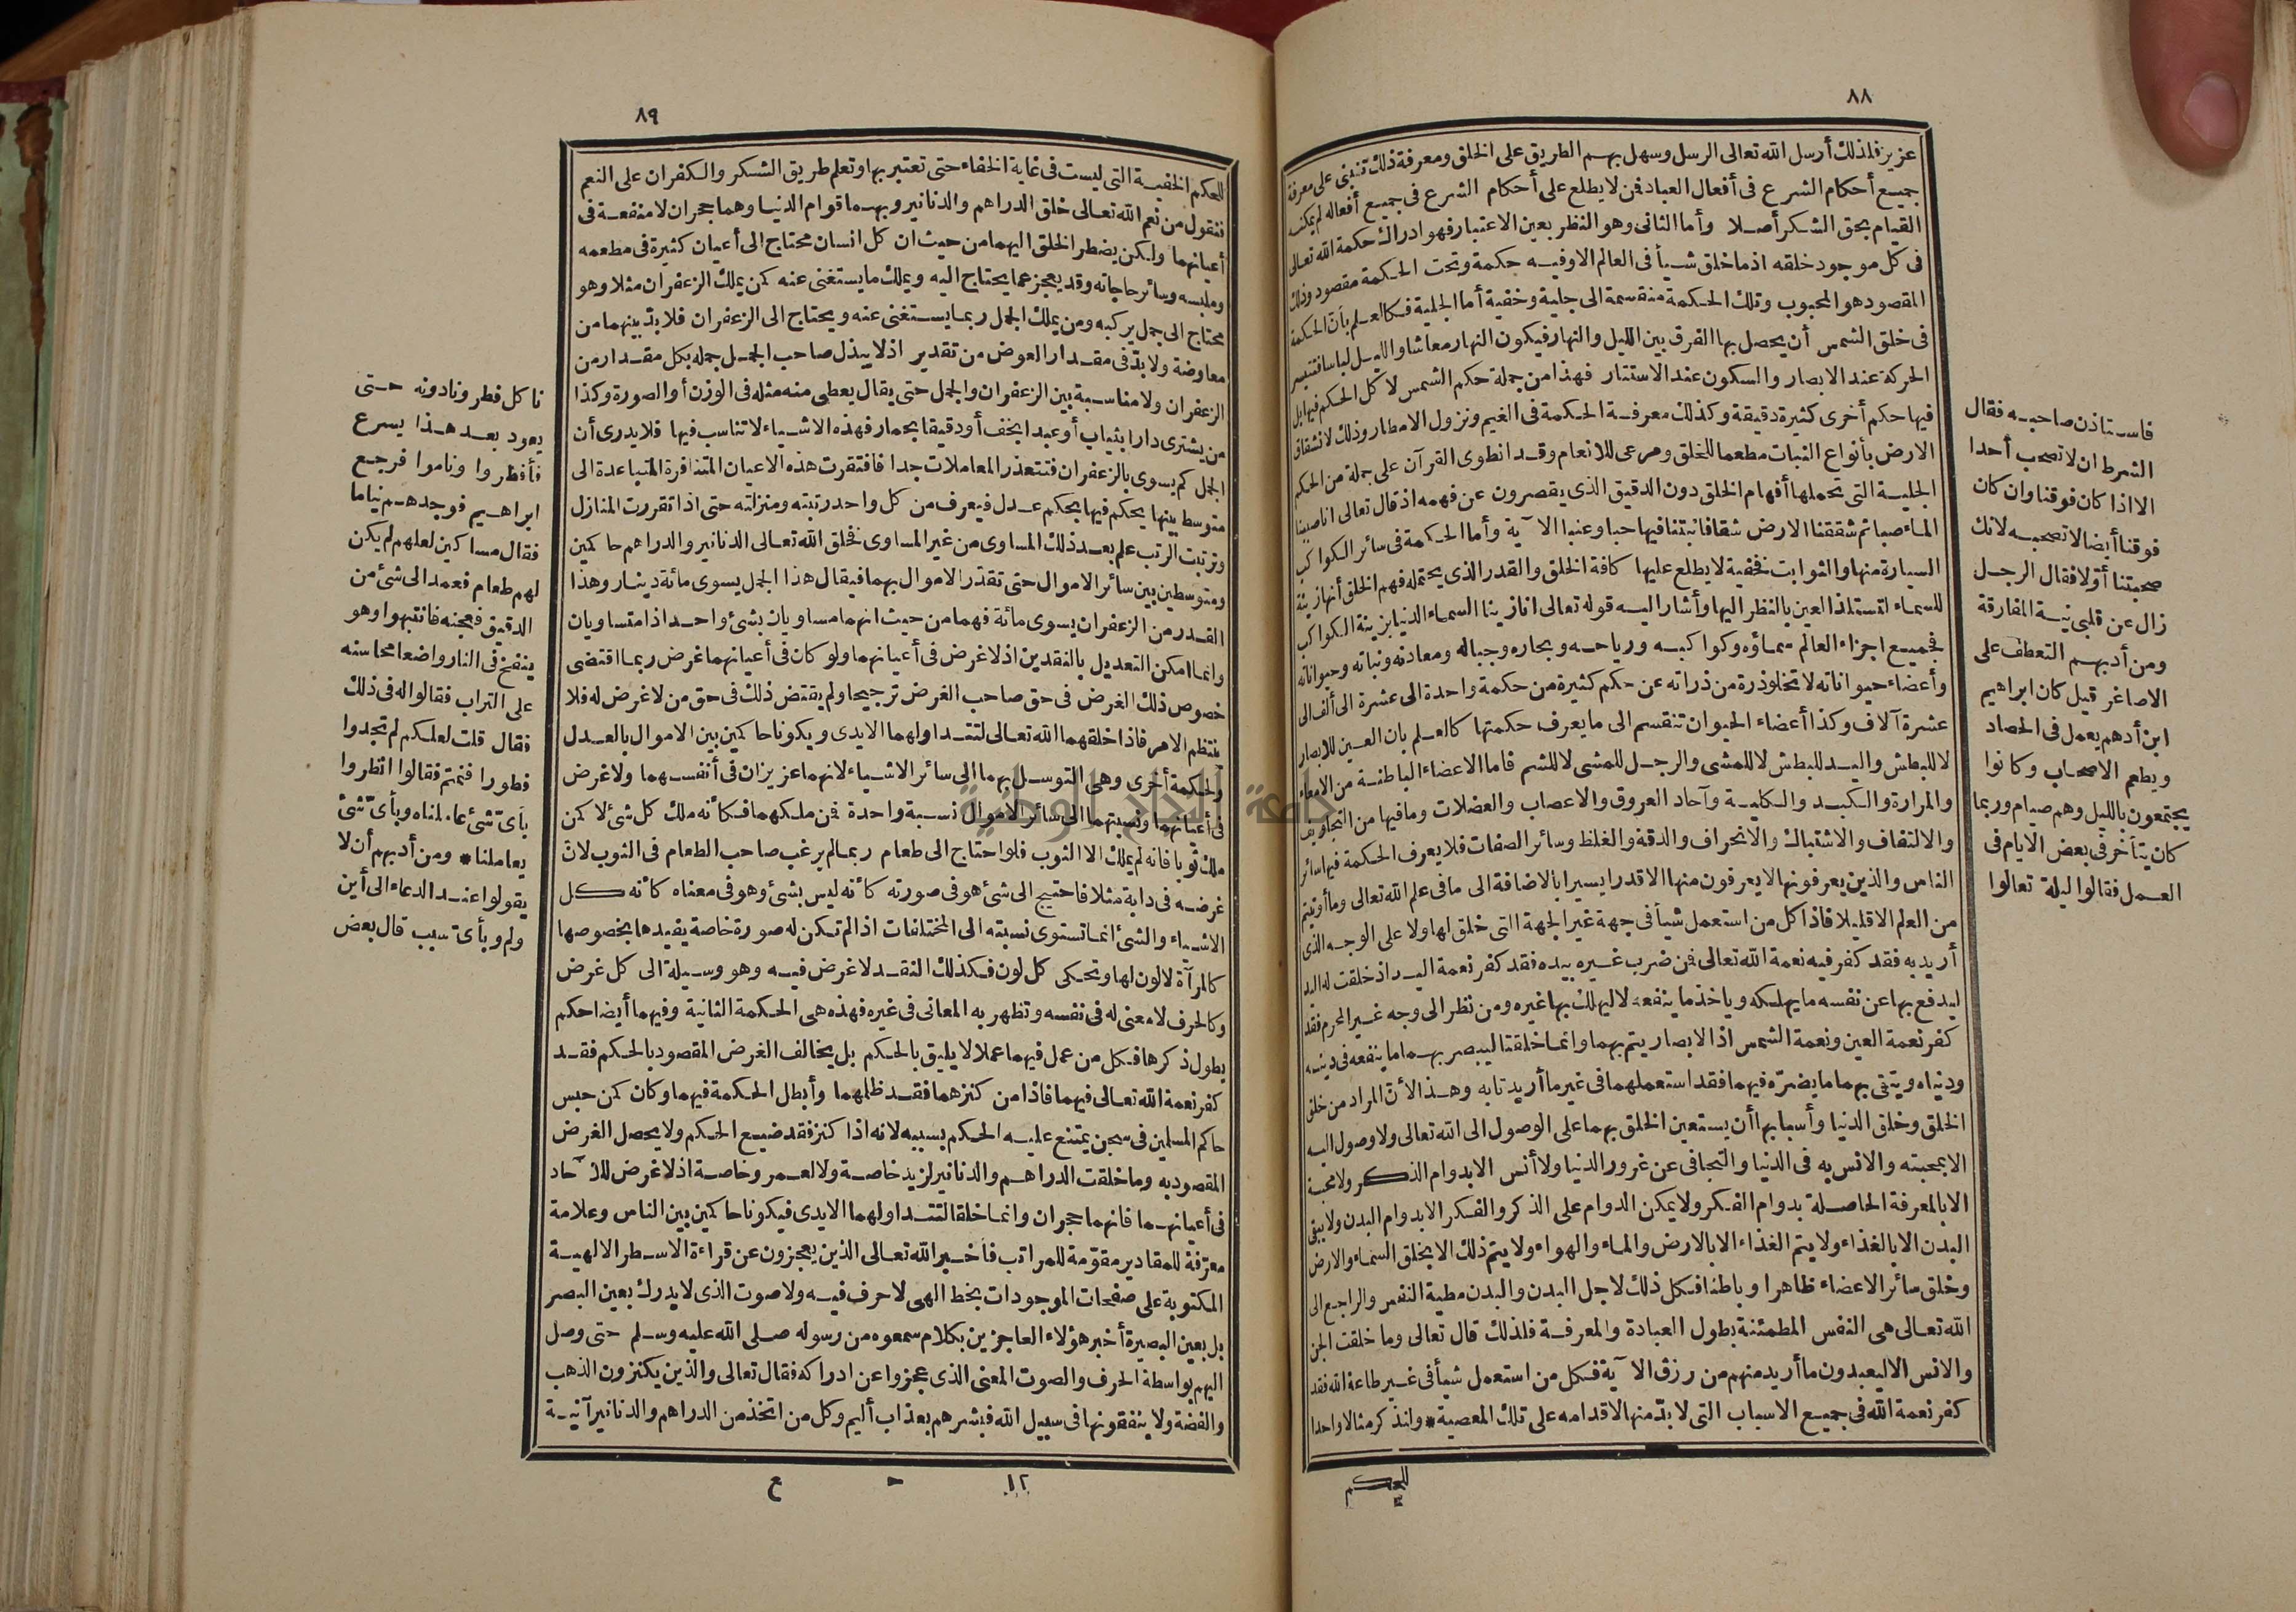 ٨٨
عزيز فلذلك أرسل الله تعالى الرسل وسهل بهم الطريق على الخلق ومعرفة ذلك تنبنى على معرفة
جميع أحكام الشرع فى أفعال العباد فمن لا يطلع على أحكام الشرع فى جميع أفعاله لم يمكنه
القيام بحق الشكر أصلا وأما الثانى وهو النظر بعين الاعتبار فهو ادراك حكمة الله تعالى
فى كل موجود خلقه اذ ما خلق شيأ فى العالم الا وفيه حكمة وتحت الحكمة مقصود وذلك
المقصود هو المحبوب وتلك الحكمة منقسمة الى جلية وخفية أما الجلية فكالعلم بأن الحكمة
فى خلق الشمس أن يحصل بها الفرق بين الليل والنهار فيكون النهار معاشا والليل لباسا فتتيسر
الحركة عند الابصار والسكون عند الاستتار فهذا من جملة حكم الشمس لا كل الحكم فيها بل
فيها حكم أخرى كثيرة دقيقة وكذلك معرفة الحكمة فى الغيم ونزول الامطار وذلك لانشقاق
الارض بأنواع النبات مطعما للخلق ومرعى للانعام وقد انطوى القرآن على جملة من الحكم
الجلية التى تحملها أفهام الخلق دون الدقيق الذى يقصرون عن فهمه اذ قال تعالى انا صببنا
الماء صبا ثم شققنا الارض شقا فانبتنا فيها حبا وعنبا الآية وأما الحكمة فى سائر الكواكب
السيارة منها والثوابت فخفية لا يطلع عليها كافة الخلق والقدر الذى يحتمله فهم الخلق أنها زينة
للسماء لتستلذ العين بالنظر اليها وأشار اليه قوله تعالى انا زينا السماء الدنيا بزينة الكواكب
فجميع اجزاء العالم سماؤه وكواكبه ورياحه وبحاره وجباله ومعادنه ونباته وحيواناته
وأعضاء حيواناته لا تخلو ذرة من ذراته عن حكم كثيرة من حكمة واحدة الى عشرة الى ألف الى
عشرة آلاف وكذا أعضاء الحيوان تنقسم الى ما يعرف حكمتها كالعلم بان العين للابصار
لا للبطش واليد للبطش لا للمشى والرجل للمشى لا للشم فاما الاعضاء الباطنة من الامعاء
والمرارة والكبد والكلية وآحاد العروق والاعصاب والعضلات وما فيها من التجاويف
والالتفاف والاشتباك والانحراف والدقة والغلظ وسائر الصفات فلا يعرف الحكمة فيها سائر
الناس والذين يعرفونها لا يعرفون منها الا قدرا يسيرا بالاضافة الى ما فى علم الله تعالى وما أوتيتم
من العلم الا قليلا فاذا كل من استعمل شيأ فى جهة غير الجهة التى خلق لها ولا على الوجه الذى
أريد به فقد كفر فيه نعمة الله تعالى فمن ضرب غيره بيده فقد كفر نعمة اليد اذ خلقت له اليد
ليدفع بها عن نفسه ما يهلكه وياخذ ما ينفعه لا ليهلك بها غيره ومن نظر الى وجه غير المحرم فقد
كفر نعمة العين ونعمة الشمس اذ الابصار يتم بهما وانما خلقتا ليبصر بهما ما ينفعه فى دينه
ودنياه ويتقى بهما ما يضرّه فيهما فقد استعملهما فى غير ما أريدتا به وهذا لأن المراد من خلق
الخلق وخلق الدنيا وأسبابها أن يستعين الخلق بهما على الوصول الى الله تعالى ولا وصول اليه
الا بمحبته والانس به فى الدنيا والتجافى عن غرور الدنيا ولا أنس الا بدوام الذكر ولا محبة
الا بالمعرفة الحاصلة بدوام الفكر ولا يمكن الدوام على الذكر والفكر الا بدوام البدن ولا يبقى
البدن الا بالغذاء ولا يتم الغذاء الا بالارض والماء والهواء ولا يتم ذلك الا بخلق السماء والارض
وخلق سائر الاعضاء ظاهرا وباطنا فكل ذلك لاجل البدن والبدن مطية النفس والراجع الى
الله تعالى هى النفس المطمئنة بطول العبادة والمعرفة فلذلك قال تعالى وما خلقت الجن
والانس الا ليعبدون ما أريد منهم من رزق الآية فكل من استعمل شيأ فى غير طاعة الله فقد
كفر نعمة الله فى جميع الاسباب التى لا بدّ منها لاقدامه على تلك المعصية * ولنذكر مثالا واحدا
للحكم
فاستاذن صاحبه فقال
الشرط ان لا تصحب أحدا
الا اذا كان فوقنا وان كان
فوقنا أيضا لا تصحبه لانك
صحبتنا أوّلا فقال الرجل
زال عن قلبى نية المفارقة
ومن أدبهم التعطف على
الاصاغر قيل كان ابراهيم
ابن أدهم يعمل فى الحصاد
ويطعم الاصحاب وكانوا
يجتمعون بالليل وهم صيام وربما
كان يتأخر فى بعض الايام فى
العمل فقالوا ليلة تعالوا
٨٩
للحكم الخفية التى ليست فى غاية الخفاء حتى تعتبر بها وتعلم طريق الشكر والكفران على النعم
فنقول من نعم الله تعالى خلق الدراهم والدنانير وبهما قوام الدنيا وهما حجران لا منفعة فى
أعيانهما ولكن يضطر الخلق اليهما من حيث ان كل انسان محتاج الى أعيان كثيرة فى مطعمه
وملبسه وسائر حاجاته وقد يعجز عما يحتاج اليه ويملك ما يستغنى عنه كمن يملك الزعفران مثلا وهو
محتاج الى جمل يركبه ومن يملك الجمل ربما يستغنى عنه ويحتاج الى الزعفران فلا بدّ بينهما من
معاوضة ولا بدّ فى مقدار العوض من تقدير اذ لا يبذل صاحب الجمل جمله بكل مقدار من
الزعفران ولا مناسبة بين الزعفران والجمل حتى يقال يعطى منه مثله فى الوزن أو الصورة وكذا
من يشترى دارا بثياب أو عبدا بخف أو دقيقا بحمار فهذه الاشياء لا تناسب فيها فلا يدرى أن
الجمل كم يسوى بالزعفران فتتعذر المعاملات جدا فافتقرت هذه الاعيان المتنافرة المتباعدة الى
متوسط بينها يحكم فيها بحكم عدل فيعرف من كل واحد رتبته ومنزلته حتى اذا تقررت المنازل
وترتبت الرتب علم بعد ذلك المساوى من غير المساوى فخلق الله تعالى الدنانير والدراهم حاكمين
ومتوسطين بين سائر الاموال حتى تقدّر الاموال بهما فيقال هذا الجمل يسوى مائة دينار وهذا
القدر من الزعفران يسوى مائة فهما من حيث انهما مساويان بشئ واحد اذا متساويان
وانما امكن التعديل بالنقدين اذ لا غرض فى أعيانهما ولو كان فى أعيانهما غرض ربما اقتضى
خصوص ذلك الغرض فى حق صاحب الغرض ترجيحا ولم يقتض ذلك فى حق من لا غرض له فلا
ينتظم الامر فاذا خلقهما الله تعالى لتتداولهما الايدى ويكونا حاكمين بين الاموال بالعدل
ولحكمة أخرى وهى التوسل بهما الى سائر الاشياء لانهما عزيزان فى أنفسهما ولا غرض
فى أعيانهما ونسبتهما الى سائر الاموال نسبة واحدة فمن ملكهما فكأنه ملك كل شئ لا كمن
ملك ثوبا فانه لم يملك الا الثوب فلو احتاج الى طعام ربما لم يرغب صاحب الطعام فى الثوب لان
غرضه فى دابة مثلا فاحتيج الى شئ هو فى صورته كأنه ليس بشئ وهو فى معناه كأنه كل
الاشياء والشئ انما تستوى نسبته الى المختلفات اذا لم تكن له صورة خاصة يفيدها بخصوصها
كالمرآة لا لون لها وتحكى كل لون فكذلك النقد لا غرض فيه وهو وسيلة الى كل غرض
وكالحرف لا معنى له فى نفسه وتظهر به المعانى فى غيره فهذه هى الحكمة الثانية وفيهما أيضا حكم
يطول ذكرها فكل من عمل فيهما عملا لا يليق بالحكم بل يخالف الغرض المقصود بالحكم فقد
كفر نعمة الله تعالى فيهما فاذا من كنزهما فقد ظلمهما وأبطل الحكمة فيهما وكان كمن حبس
حاكم المسلمين فى سجن يمتنع عليه الحكم بسببه لانه اذا كنز فقد ضيع الحكم ولا يحصل الغرض
المقصود به وما خلقت الدراهم والدنانير لزيد خاصة ولا لعمرو خاصة اذ لا غرض للآحاد
فى أعيانهما فانهما حجران وانما خلقا لتتداولهما الايدى فيكونا حاكمين بين الناس وعلامة
معرّفة للمقادير مقوّمة للمراتب فأخبر الله تعالى الذين يعجزون عن قراءة الاسطر الالهية
المكتوبة على صفحات الموجودات بخط الهى لا حرف فيه ولا صوت الذى لا يدرك بعين البصر
بل بعين البصيرة أخبر هؤلاء العاجزين بكلام سمعوه من رسوله صلى الله عليه وسلم حتى وصل
اليهم بواسطة الحرف والصوت المعنى الذى عجزوا عن ادراكه فقال تعالى والذين يكنزون الذهب
والفضة ولا ينفقونها فى سبيل الله فبشرهم بعذاب أليم وكل من اتخذ من الدراهم والدنانير آنية
١٢ ـ ع
نا كل فطرونا دونه حتى
يعود بعد هذا يسرع
فأفطروا وناموا فرجع
ابراهيم فوجدهم نياما
فقال مساكين لعلهم لم يكن
لهم طعام فعمد الى شئ من
الدقيق فعجنه فانتبهوا وهو
ينفخ فى النار واضعا محاسنه
على التراب فقالوا له فى ذلك
فقال قلت لعلكم لم تجدوا
فطورا فنمتم فقالوا انظروا
بأىّ شئ عاملناه وبأىّ شئ
يعاملنا * ومن أدبهم أن لا
يقولوا عند الدعاء الى أين
ولم وبأىّ سبب قال بعض
جامعة النجاح الوطنية